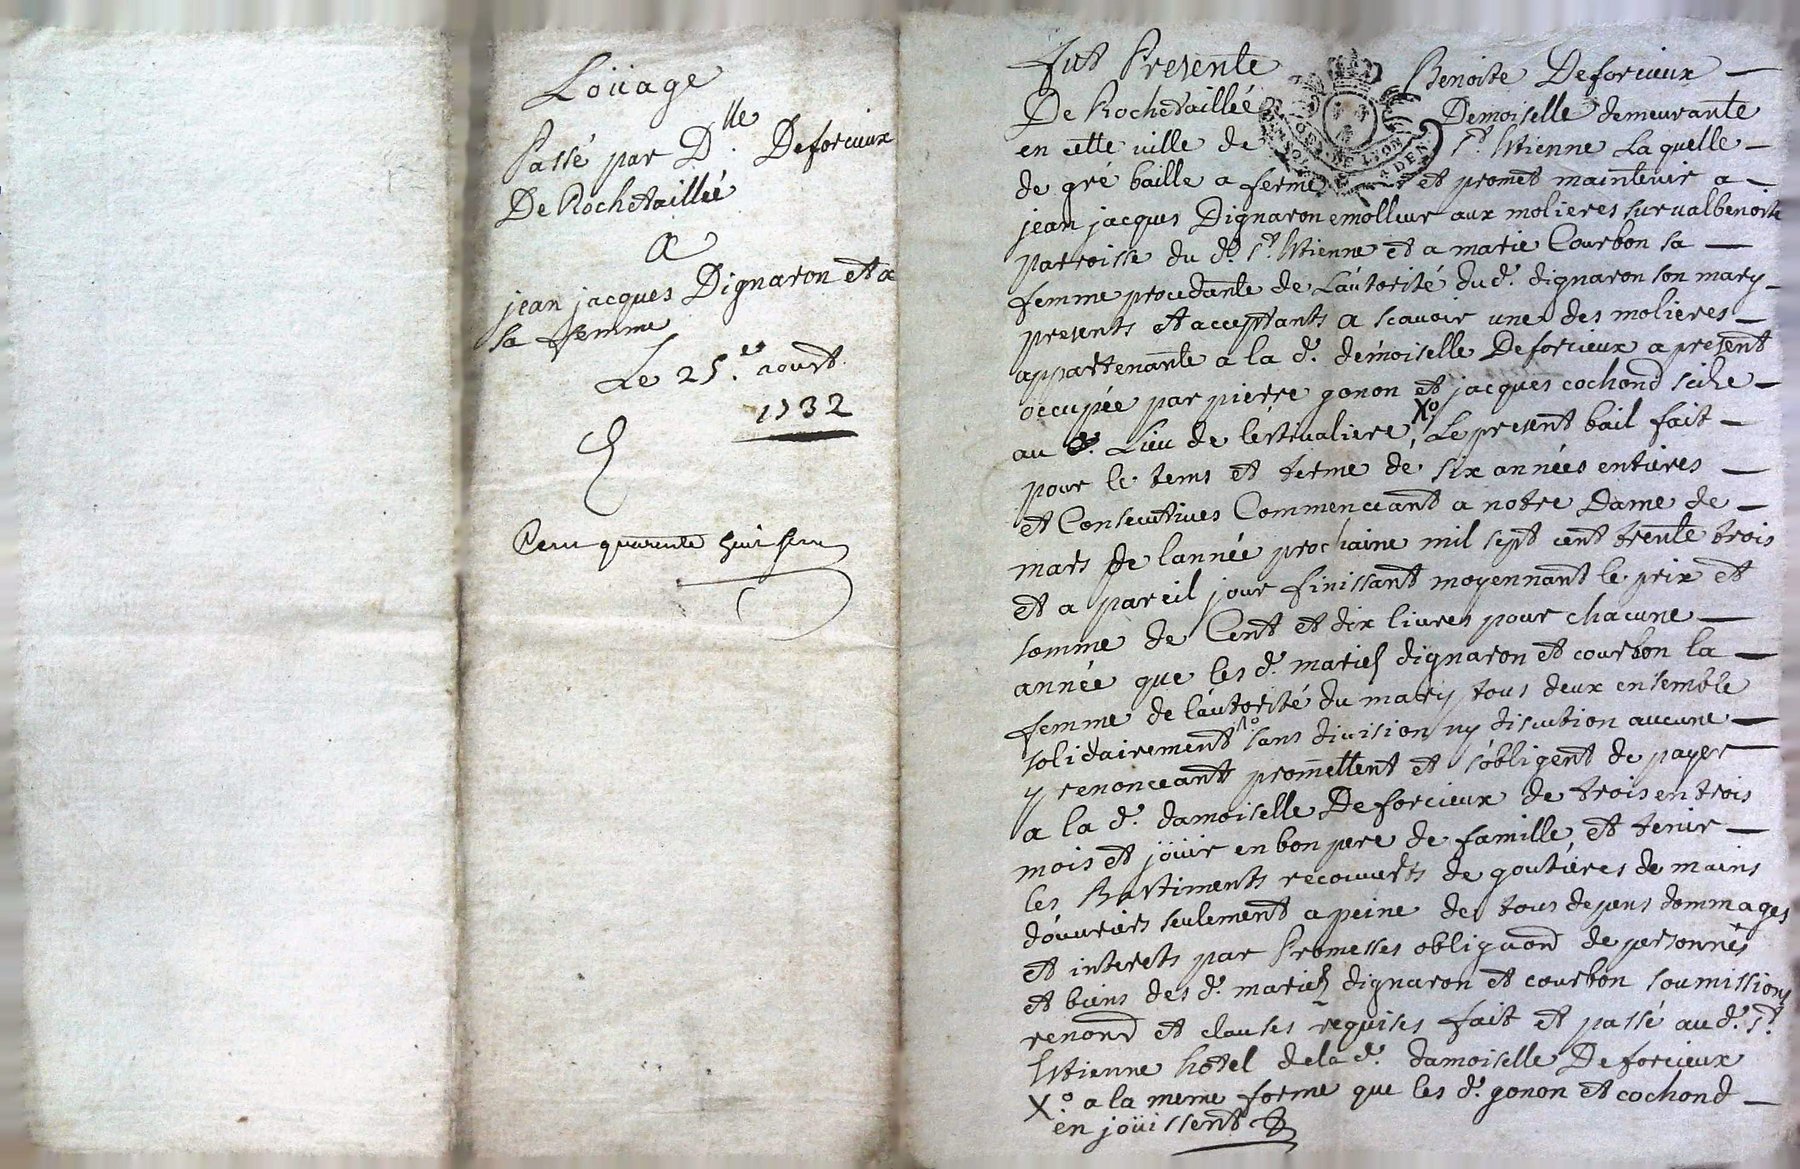 Loüage
Passé par D.lle Deforcieux
De Rochetaillée
a
jean jacques Dignaron et a
sa femme
Le 25.e aoust
1732
Cent quarente huit
fut Presente Benoite Deforcieux
De Rochetaillée Demoiselle demeurante
en cette ville de St. Estienne Laquelle
de gré baille a ferme et promet maintenir a
jean jacques Dignaron emolleur aux molieres sur valbenoite
parroisse du d. St. Estienne et a marie Courbon sa
femme procedante de L'autorité du d. dignaron son mary
presents et acceptants a scavoir une des molieres
appartenante a la d. demoiselle Deforcieux a present
occupée par pierre gonon et jacques cochond scize
au d. Lieu de lestivaliere, X.o Le present bail fait
pour le tems et terme de six années entieres
et Consecutives Commenceant a notre Dame de
mars de lannée prochaine mil sept cent trente trois
et a pareil jour finissant moyennant le prix et
somme de Cent et dix livres pour chacune
année que les d. mariés dignaron et courbon la
femme de l'autorité du mary tous deux ensemble
solidairement sans division ny discution aucune
y renonceant promettent et s'obligent de payer
a la d. damoiselle Deforcieux de trois en trois
mois et joüir en bon pere de famille, et tenir
les Bastiments recouverts de goutieres de mains
d'ouvriers seulement a peine de tous depens dommages
et interets par Promesses obligaond de personnes
et biens des d. mariés dignaron et courbon soumissions
renond et clauses requises fait et passé au d. St.
Estienne hotel de la d. damoiselle Deforcieux
X.o a la meme forme que les d. gonon et cochond
en joüissent